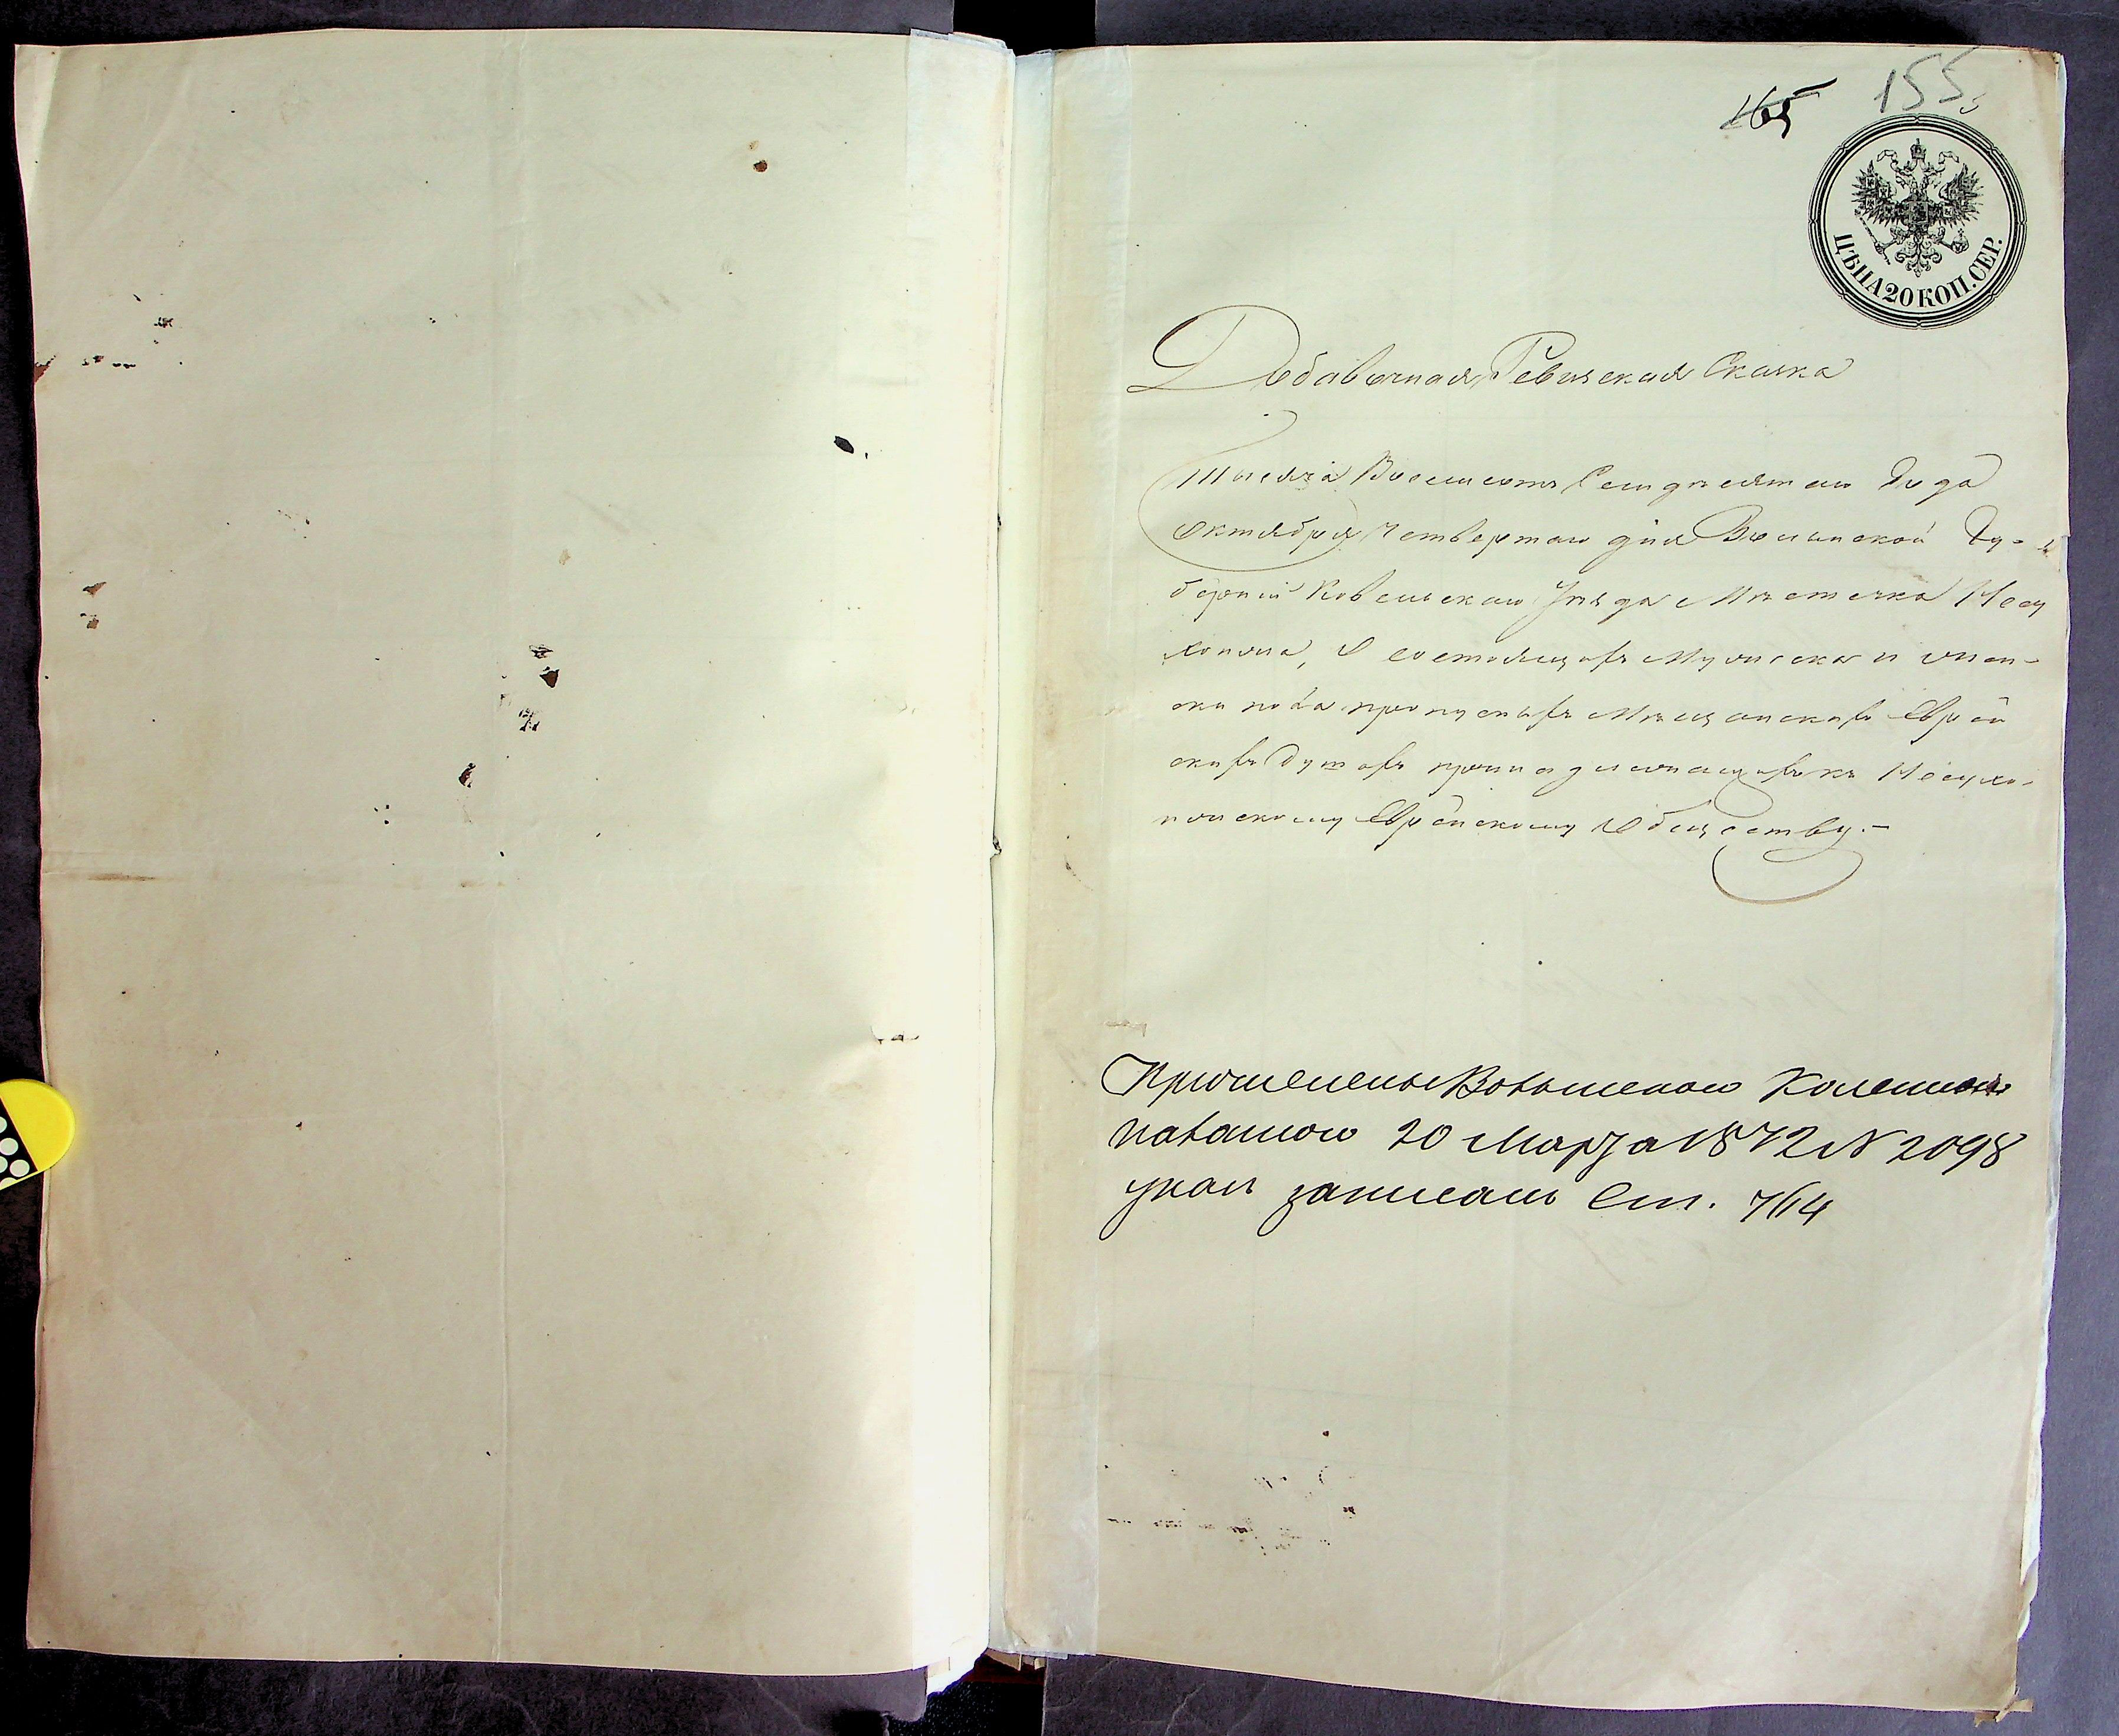 165 155
ЦѢНА 20 КОП. СЕР.
Добавочная Ревизская Сказка
Тысяча Восемсотъ Семдесятаго Года
Октября Четвертаго дня Волынской Гу-
берніи Ковельскаго Уѣзда Мѣстечка Несу
хоижа, О состоящихъ Мужеска и жен-
ска пола пропускныхъ Мѣщанскихъ Еврей
скихъ душахъ принадлежащихъ къ Несухо-
ижскому Еврейскому Обществу.-
Волынскою Казенною
палатою 20 Марта 1872 N 2098
указъ записанъ Ст. 764